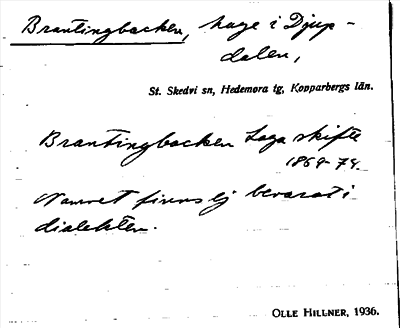 Brantingbacken, hage i Djup-
dalen,
St. Skedvi sn, Hedemora tg, Kopparbergs län.
Brantingbacken Laga skifte
1869-74.
Namnet finns ej bevarat i
dialekten.
OLLE HILLNER, 1936.